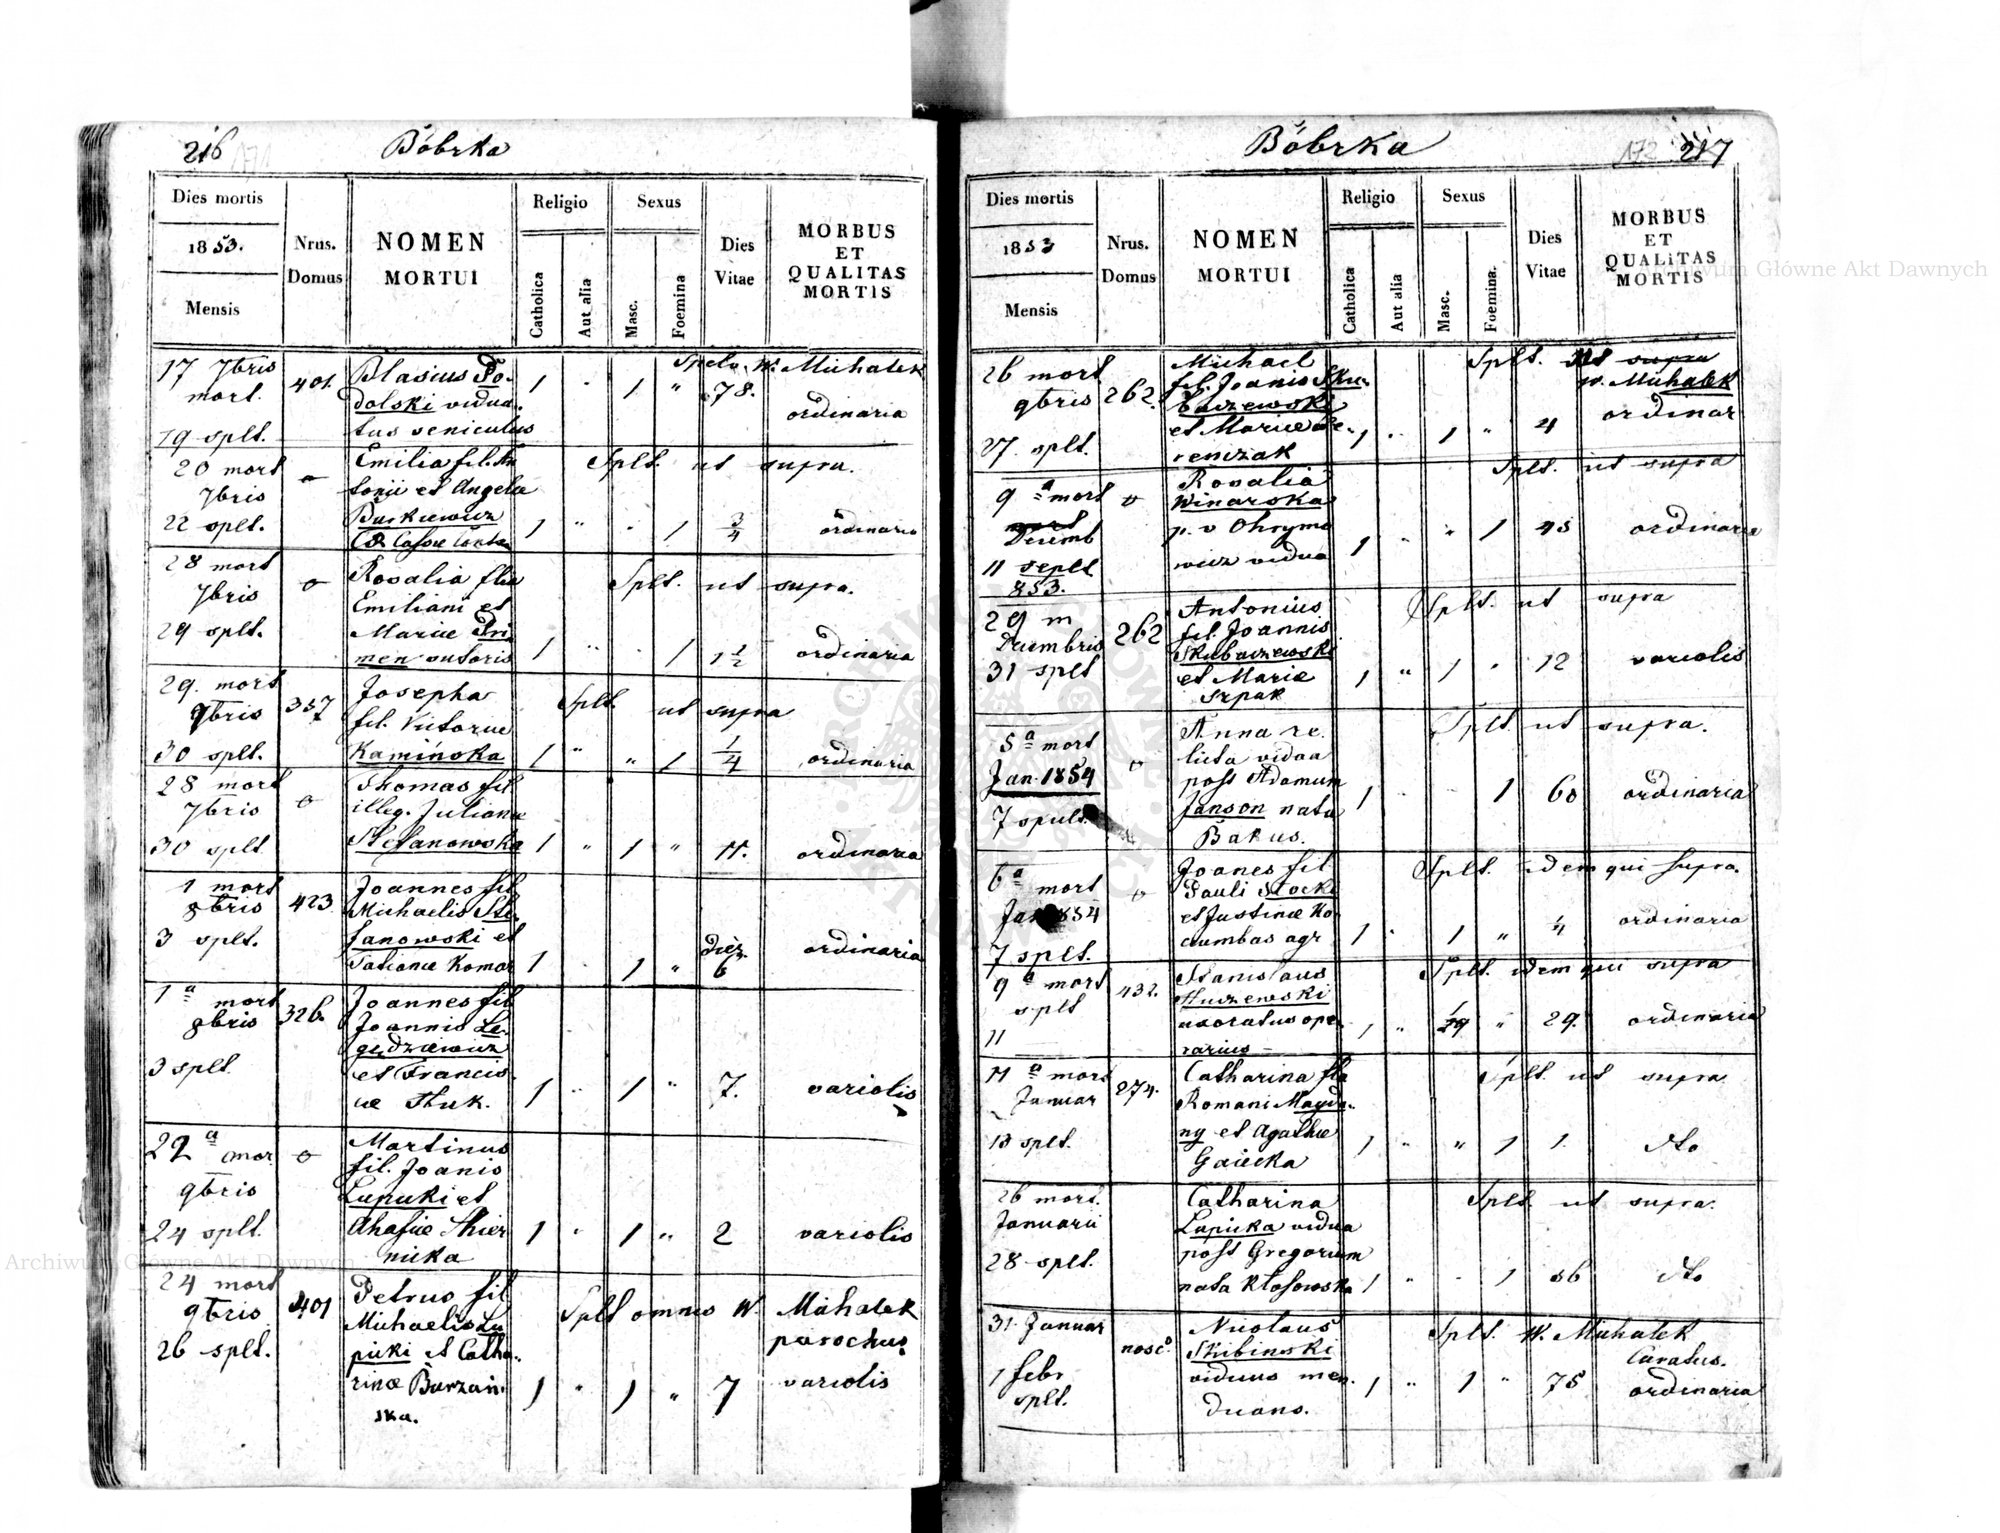 216 171
Bóbrka
Dies mortis
1853.
Mensis
Nrus.
Domus
NOMEN
MORTUI
Religio
Catholica
Aut alia
Sexus
Masc.
Foemina
Dies
Vitae
MORBUS
ET
QUALITAS
MORTIS
17 7bris
mort.
19 splt.
401.
Blasius Po-
dolski vidua-
tus
1 " 1 "
78.
W. Michalek
ordinaria
20 mort
7bris
22 splt.
o
Emilia fil. An
tonii et Angela
Splt. ut supra.
1 " " 1 3/4
ordinaria
28 mort
7bris
29 splt.
o
Rosalia flia
Emiliani et
Mariae Pri
men sutoris
Splt. ut supra.
1 " " 1 1 1/2
ordinaria
29. mort
9bris
30 splt.
357
Josepha
fil. Victoriae
Kamińska
Splt. ut supra
1 " " 1 1/4
ordinaria
28 mort
7bris
30 splt.
o
Thomas fil
illeg. Julianae
Stefanowska
1 " 1 " 11.
ordinaria
1 mort
8bris
3 splt.
423
Joannes fil
Michaelis Ste-
fanowski et
Tatianae Komar
1 " 1 "
6
ordinaria
1 a mort
8bris
3 splt
326.
Joannes fil
Joannis Lę-
gędziewicz
et Francis-
cae Huk.
1 " 1 " 7.
variolis
22 a mor
9bris
24 splt.
o
Martinus
fil. Joanis
Łupicki et
1 " 1 " 2
variolis
24 mort
9bris
26 splt.
401
Petrus fil
Michaelis Łu
picki et Catha-
rinae Burzań-
ska.
Splt omnes W. Michalek
parochus
1 " 1 " 7
variolis
Bóbrka
172 217
Dies mortis
1853
Mensis
Nrus.
Domus
NOMEN
MORTUI
Religio
Catholica
Aut alia
Sexus
Masc.
Foemina.
Dies
Vitae
MORBUS
ET
QUALITAS
MORTIS
26 mort
9bris
27. splt.
262.
Michael
fil. Joanis Sku-
baczewski
et Mariae
Splt. ut supra
W. Michalek
1 " 1 " 4
ordinar
9 a mort
mort
Decemb
11 seplt
853.
o
Rosalia
Winarska
p. v Ohrymo
wicz vidua
Splt. ut supra
1 " " 1 45
ordinaria
29 m
Decembris
31 splt
262
Antonius
fil. Joannis
Skubaczewski
et Mariae
Szpak
Splt. ut supra
1 " 1 " 12
variolis
5 a mort
Jan. 1854
7 spult.
o
Anna re-
licta vidua
post Adamum
Janson nata
Bakus.
Splt ut supra.
1 " 1 60
ordinaria
6 a
mort
Jan 854
7 splt.
o
Joanes fil
Pauli Stocki
et Justinae Ko
Splt. idem qui supra.
1 " 1 " 1/4
ordinaria
9 a mort
splt
11
432.
Stanislaus
uxoratus ope-
rarius
Splt. idem qui supra
1 " " 29.
ordinaria
11 a mort
Januar
13 splt.
274.
Catharina fla
Romani Mayda-
ny et Agathae
Gaiecka
Splt. ut supra
1 " " 1 1.
dto
26 mort.
Januarii
28 splt.
Catharina
Łupicka vidua
post Gregorium
nata Kłosowska
Splt ut supra.
1 " " 1 56
dto
31. Januar
1 febr
splt.
Nicolaus
Skibinski
viduus men-
dicans.
Splt. W. Michalek
Curatus.
1 " 1 " 75
ordinaria
Archiwum Główne Akt Dawnych
Archiwum Główne Akt Dawnych